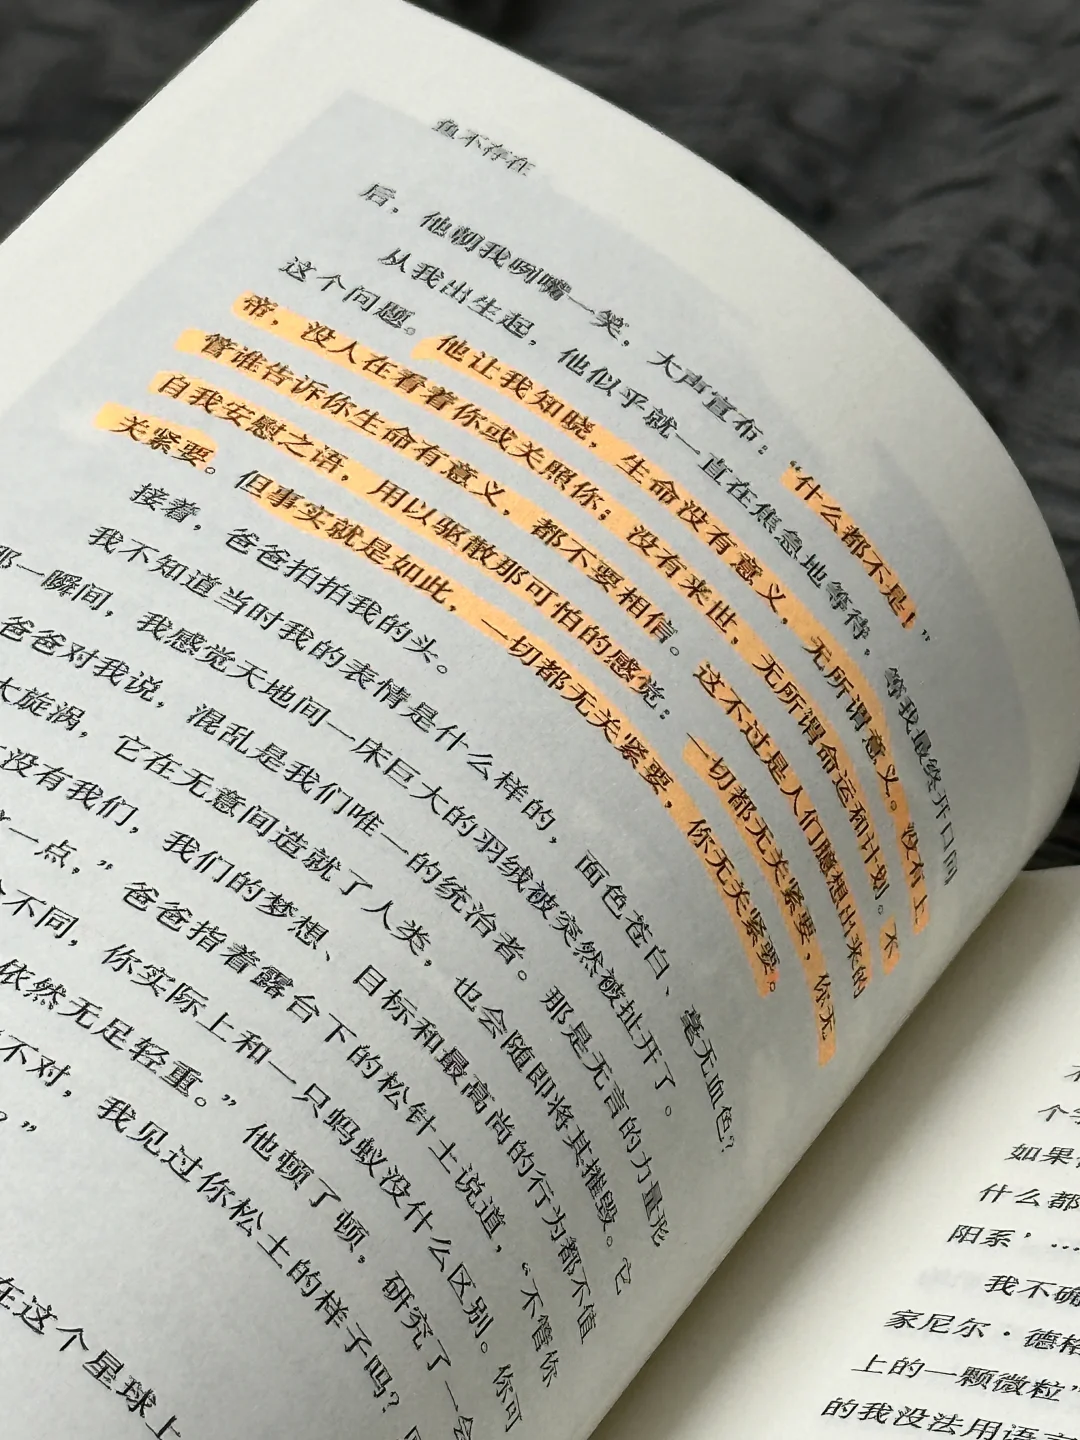 鱼不存在
后，他朝我咧嘴一笑，大声宣布：“什么都不是！”
从我出生起，他似乎就一直在焦急地等待，等我最终开口问
这个问题。他让我知晓，生命没有意义，无所谓意义。没有上
帝，没人在看着你或关照你；没有来世，无所谓命运和计划。不
管谁告诉你生命有意义，都不要相信。这不过是人们臆想出来的
自我安慰之语，用以驱散那可怕的感觉：一切都无关紧要，你无
关紧要。但事实就是如此，一切都无关紧要，你无关紧要。
接着，爸爸拍拍我的头。
我不知道当时我的表情是什么样的，面色苍白、毫无血色？
那一瞬间，我感觉天地间一床巨大的羽绒被突然被扯开了。
爸爸对我说，混乱是我们唯一的统治者。那是无言的力量形
大旋涡，它在无意间造就了人类，也会随即将其摧毁。它
没有我们，我们的梦想、目标和最高尚的行为都不值
一点，”爸爸指着露台下的松针土说道，“不管你
不同，你实际上和一只蚂蚁没什么区别。你可
依然无足轻重。”他顿了顿，研究了一会
不对，我见过你松土的样子吗？
？”
在这个星球上
个
如果
什么都
阳系’…
我不确
家尼尔·德格
上的一颗微粒”
的我没法用语言